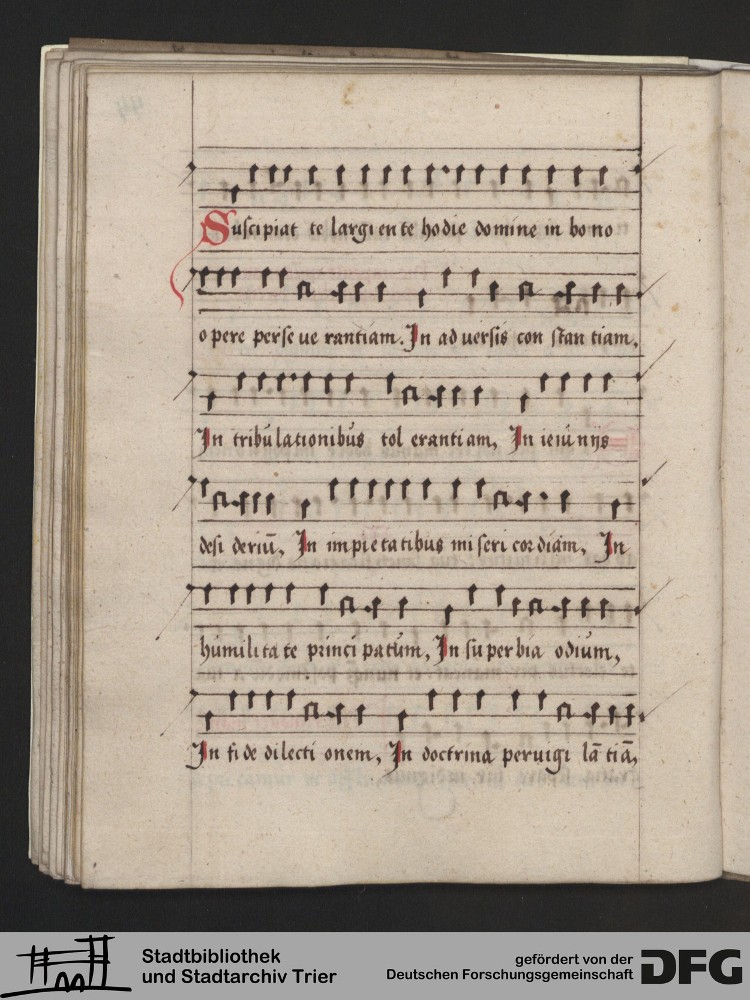 Suscipiat te largiente hodie domine in bono
opere perseuerantiam. In aduersis constantiam,
In tribulationibus tolerantiam, In ieiunijs
desideriū, In impietatibus misericordiam, In
humilitate principatum, In superbia odium,
In fide dilectionem, In doctrina peruigilātiā,
Stadtbibliothek
und Stadtarchiv Trier
gefördert von der
Deutschen Forschungsgemeinschaft
DFG